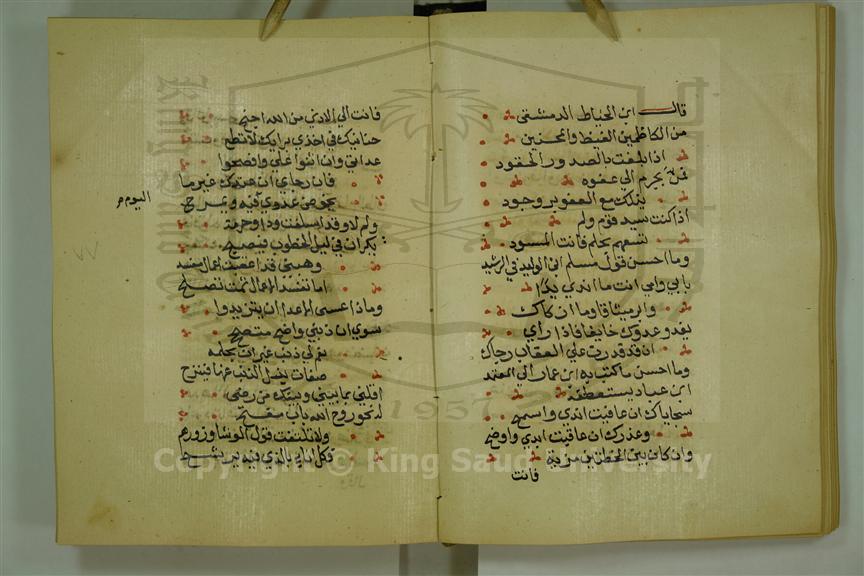 قال ابن الخياط الدمشقي
من الكاظمين الغيظ والمحسنين
اذا بلغت بالصدور الحقود
فمن يجرم الى عفوه
يذلك مع العفو يرجود
اذا كنت سيد قوم ولم
تسعهم بحلم فانت المسود
وما احسن قول مسلم ابن الوليد في الرشيد
بابي وامي انت ما اندي يدا
وابر ميثاقا وما ازكاك
يغدو عدوك خايفا فاذا رأي
ان قد قدرت على العقاب رجاك
وما احسن ما كتب به ابن عمار الى المعتمد
ابن عباد يستعطفه
سجاياك ان عافيت اندي واسمح
وعذرك ان عاقبت اجلي واوضح
وان كان بين الخطتين مزية
فانت
فانت الي الادني من الله اجنح
حنانيك في اخذي برايك لا تطع
عداتي وان اثنوا علي وافصحوا
فان رجاي ان عندك غير ما
يخوض عدوي فيه ويمرح
اليوم
ولم لا وقد اسلفت ودا وحرمة
يكران في ليل الخطوب فيصبح
وهبني قد اعقبت اعمال مفسد
اما تفسد الاعمال ثمت تصلح
وماذا عسي الاعدا ان يتزيدوا
سوي ان ذنبي واضح متصحح
نعم لي ذنب غير ان لحلمه
صفات يزل الذنب عنها فيسفح
اقلني بما بيني وبينك من رضى
له نحو روح الله باب مفتح
ولا تلتفت قول الوشاة وزورهم
فكل اناء بالذي فيه يرشح
Copyright © King Saud University
1957